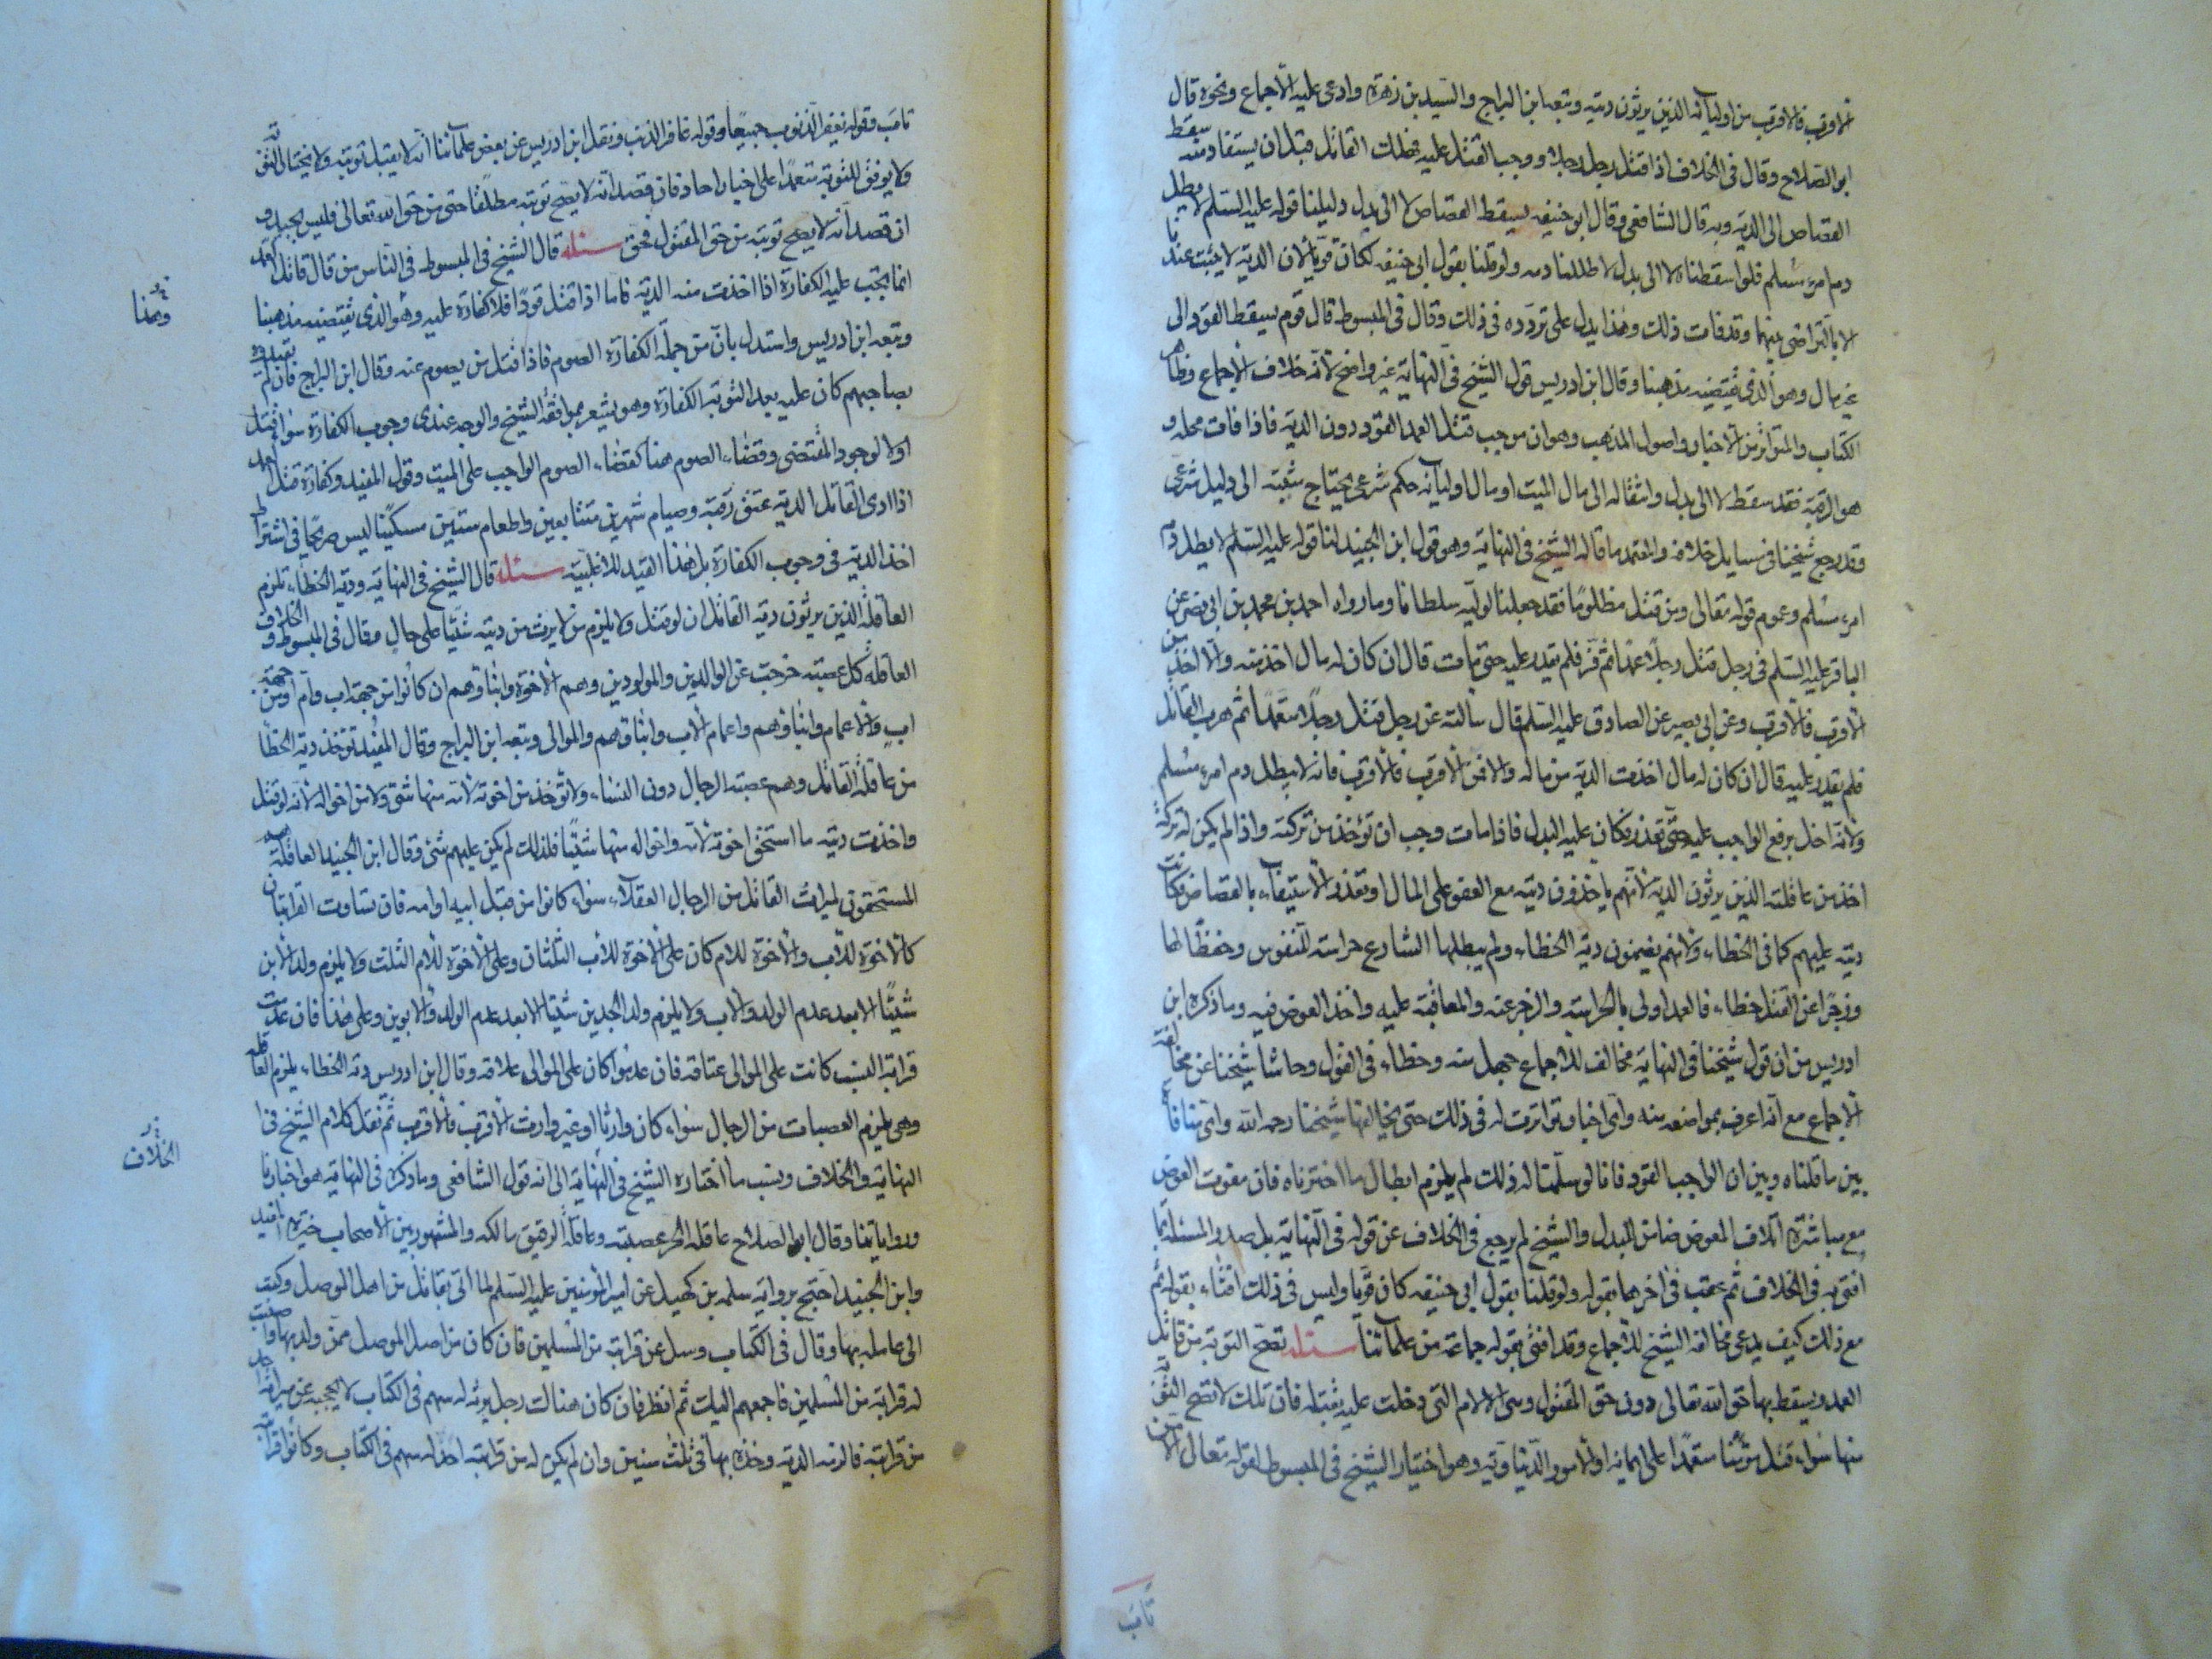 الاقرب فالاقرب من اوليائه الذين يرثون ديته وتبعه ابن البراج والسيد بن زهره وادعى عليه الاجماع ونحوه قال
ابو الصلاح وقال فى الخلاف اذا قتل رجل رجلا ووجب القتل عليه فهلك القاتل قبل ان يستقاد منه سقط
القصاص الى الدية وبه قال الشافعى وقال ابو حنيفه يسقط القصاص لا الى بدل دليلنا قوله عليه السلم لا يطل
دم امرء مسلم فلو اسقطناه لا الى بدل لاطللنا دمه ولو قلنا بقول ابى حنيفه لكان قويا لان الدية لا يثبت عندنا
الا بالتراضى بينهما وقد فات ذلك وهذا يدل على تردده فى ذلك وقال فى المبسوط قال قوم يسقط القود الى
غير مال وهو الذى يقتضيه مذهبنا وقال ابن ادريس قول الشيخ فى النهاية غير واضح لانه خلاف الاجماع وظاهر
الكتاب والمتواتر من الاخبار واصول المذهب وهو ان موجب قتل العمد القود دون الدية فاذا فات محله و
هو الرقبة فقد سقط لا الى بدل وانتقاله الى مال الميت او مال اوليائه حكم شرعى يحتاج مثبته الى دليل شرعى
وقد رجع شيخنا فى مسايل خلافه والمعتمد ما قاله الشيخ فى النهاية وهو قول ابن الجنيد لنا قوله عليه السلم لا يطل دم
امرء مسلم وعموم قوله تعالى ومن قتل مظلوما فقد جعلنا لوليه سلطانا وما رواه احمد بن محمد بن ابى نصر عن
الباقر عليه السلم فى رجل قتل رجلا عمدا ثم فر فلم يقدر عليه حتى مات قال ان كان له مال اخذ منه والا اخذ من
الاقرب فالاقرب وعن ابى بصير عن الصادق عليه السلم قال سالته عن رجل قتل رجلا متعمدا ثم هرب القاتل
فلم يقدر عليه قال ان كان له مال اخذت الدية من ماله والا فمن الاقرب فالاقرب فانه لا يبطل دم امرء مسلم
ولانه اخل برفع الواجب عليه حتى تعذر فكان عليه البدل فاذا مات وجب ان تؤخذ من تركته واذا لم يكن له تركة
اخذ من عاقلته الذين يرثون الدية لانهم ياخذون ديته مع العفو على المال او تعذر الاستيفاء بالقصاص فكانت
ديته عليهم كما فى الخطاء ولانهم يضمنون دية الخطاء ولم يبطلها الشارع حراسته للنفوس وحفظا لها
وزجرا عن القتل خطاء فالعمد اولى بالحراسة والزجر عنه والمعاقبة عليه واخذ العوض فيه وما ذكره ابن
ادريس من ان قول شيخنا فى النهاية مخالف للاجماع جهل منه وخطاء فى القول وحاشا شيخنا عن مخالفة
الاجماع مع انه اعرف بمواضعه منه واى اخبار تواترت له فى ذلك حتى يخالفها شيخنا رحمه الله واى منافاة
بين ما قلناه وبين ان الواجب القود فانا لو سلمنا له ذلك لم يلزم ابطال ما اخترناه فان مفوت العوض
مع مباشرة اتلاف المعوض ضامن للبدل والشيخ لم يرجع فى الخلاف عن قوله فى النهاية بل صدر المسئلة بما
افتى به فى الخلاف ثم عقب فى اخرها بقوله ولو قلنا بقول ابى حنيفه كان قويا وليس فى ذلك افتاء بقوله ثم
مع ذلك كيف يدعى مخالفة الشيخ للاجماع وقد افتى بقوله جماعة من علمائنا مسئله تصح التوبة من قاتل
العمد ويسقط بها حق الله تعالى دون حق المقتول وهى الالام التى دخلت عليه بقتله فان تلك لا تصح التوبة
منها سواء قتل مؤمنا متعمدا على ايمانه او للامور الدنياوية وهو اختيار الشيخ فى المبسوط لقوله تعالى الا من
تاب
تاب وقوله يغفر الذنوب جميعا وقوله غافر الذنب ونقل ابن ادريس عن بعض علمائنا انه لا يقبل توبته ولا يختار التوبة
ولا يوفق للتوبة معتمدا على اخبار احاد فان قصد انه لا يصح توبته مطلقا حتى من حق الله تعالى فليس بجيد و
ان قصد انه لا يصح توبته من حق المقتول فحق مسئله قال الشيخ فى المبسوط فى الناس من قال قاتل العمد
انما يجب عليه الكفارة اذا اخذت منه الدية فاما اذا قتل قودا فلا كفارة عليه وهو الذى يقتضيه مذهبنا
وتبعه ابن ادريس واستدل بان من جملة الكفارة الصوم فاذا قتل من يصوم عنه وقال ابن البراج فان لم يقيدوه
بصاحبهم كان عليه بعد التوبة الكفارة وهو يشعر بموافقة الشيخ والوجه عندى وجوب الكفارة سواء قتل
اولا لوجود المقتضى وقضاء الصوم هنا كقضاء الصوم الواجب على الميت وقول المفيد وكفارة قتل العمد
اذا ادى القاتل الدية عتق رقبة وصيام شهرين متتابعين واطعام ستين مسكينا ليس صريحا فى اشتراط
اخذ الدية فى وجوب الكفارة بل هذا القيد للاغلبية مسئله قال الشيخ فى النهاية ودية الخطاء تلزم
العاقلة الذين يرثون دية القاتل ان لو قتل ولا يلزم من لا يرث من ديته شيئا على حال وقال فى المبسوط و الخلاف
العاقلة كل عصبة خرجت عن الوالدين والمولودين وهم الاخوة وابناؤهم ان كانوا من جهة اب وام او من جهة
اب والاعمام وابناؤهم واعمام الاب وابناؤهم والموالى وتبعه ابن البراج وقال المفيد تؤخذ دية الخطا
من عاقلة القاتل وهم عصبته الرجال دون النساء ولا تؤخذ من اخوته لامه منها شئ ولا من اخواله لانه لو قتل
واخذت ديته ما استحق اخوته لامه واخواله منها شيئا فلذلك لم يكن عليهم شئ وقال ابن الجنيد العاقلة هم
المستحقون لميراث القاتل من الرجال العقلاء سواء كانوا من قبل ابيه او امه فان تساوت القرابتان
كالاخوة للاب والاخوة للام كان على الاخوة للاب الثلثان وعلى الاخوة للام الثلث ولا يلزم ولد الابن
شيئا الا بعد عدم الولد والاب ولا يلزم ولد الجدين شيئا الا بعد عدم الولد والابوين وعلى هذا فان عدمت
قرابة النسب كانت على الموالى عتاقه فان عدموا كان على الموالى علاقه وقال ابن ادريس دية الخطاء يلزم العاقلة
وهى يلزم العصبات من الرجال سواء كان وارثا او غير وارث الاقرب فالاقرب ثم نقل كلام الشيخ فى
النهاية والخلاف ونسب ما اختاره الشيخ فى النهاية الى انه قول الشافعى وما ذكره فى النهاية هو اخبارنا
ورواياتنا وقال ابو الصلاح عاقلة الحر عصبته وعاقلة الرقيق مالكه والمشهور بين الاصحاب خيرة المفيد
وابن الجنيد احتج برواية سلمه بن كهيل عن امير المؤمنين عليه السلم لما اتى بقاتل من اهل الموصل وكتب
الى عامله بها وقال فى الكتاب وسل عن قرابته من المسلمين فان كان من اهل الموصل ممن ولد بها واصبت
له قرابة من المسلمين فاجمعهم اليك ثم انظر فان كان هناك رجل يرثه له سهم فى الكتاب لا يحجبه عن ميراثه احد
من قرابته فالزمه الدية وخذه بها فى ثلث سنين وان لم يكن له من قرابته احد له سهم فى الكتاب وكانوا قرابته
الخلاف